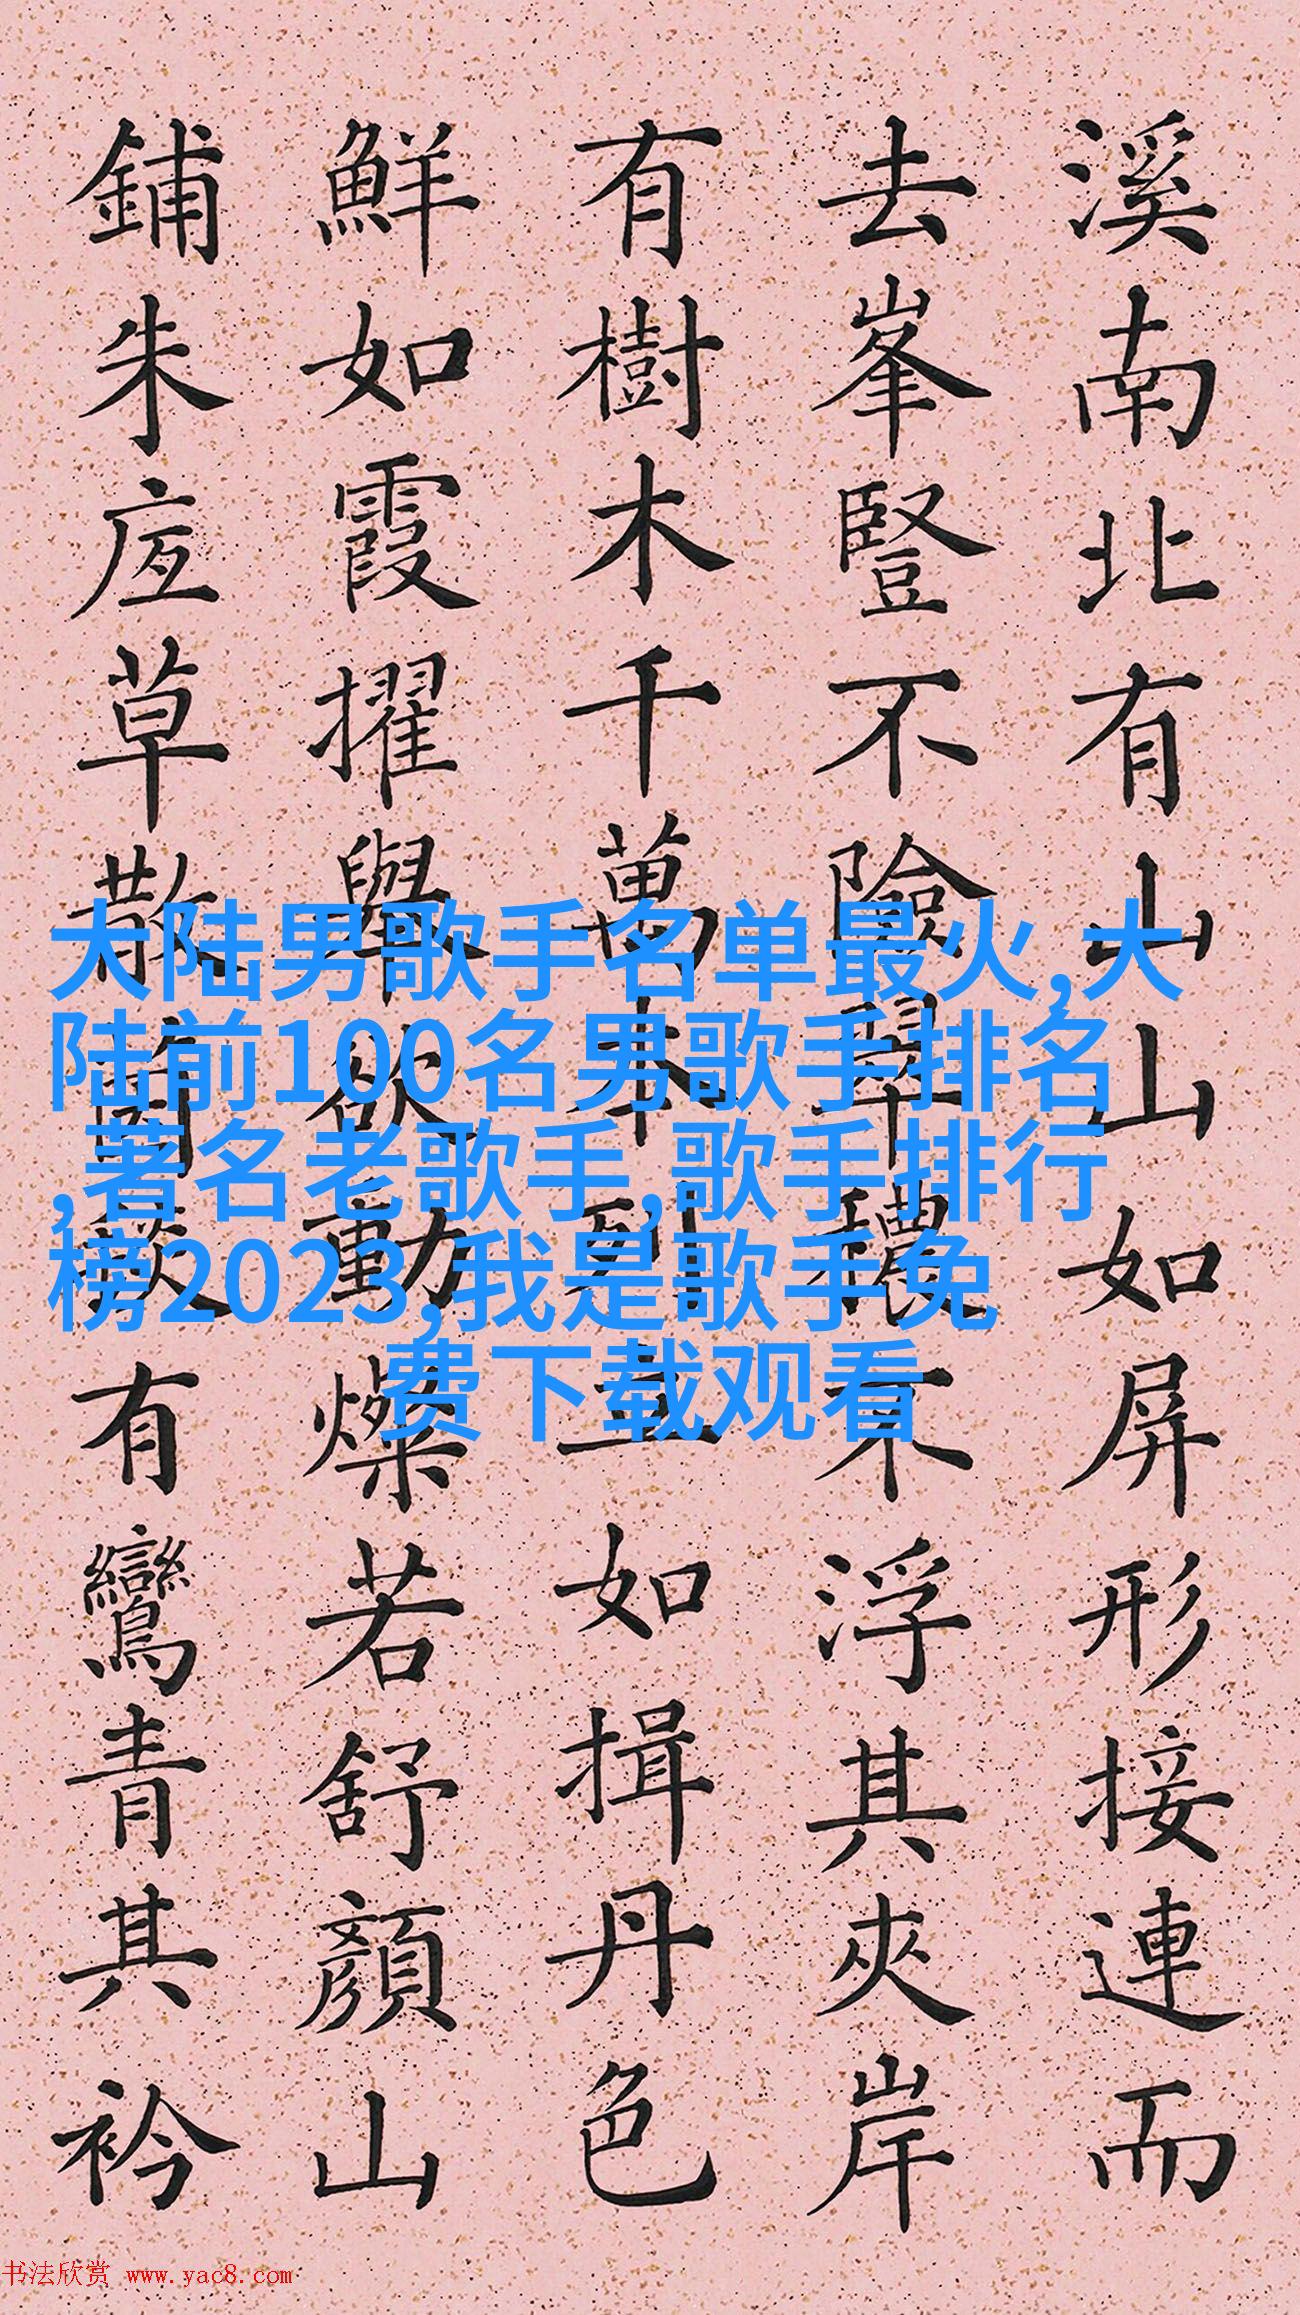 溪南北有山山如屏形接連而
去峯豎不險翠穠不浮其夾岸
有樹木千萬本列立如揖丹色
鮮如霞擢舉欲動燦若舒顏山
鋪朱底草散有鸞青其衿
大陆男歌手名单最火,大
陆前100名男歌手排名
,著名老歌手,歌手排行
榜2023,我是歌手免
费下载观看
书法欣赏 www.yac8.com